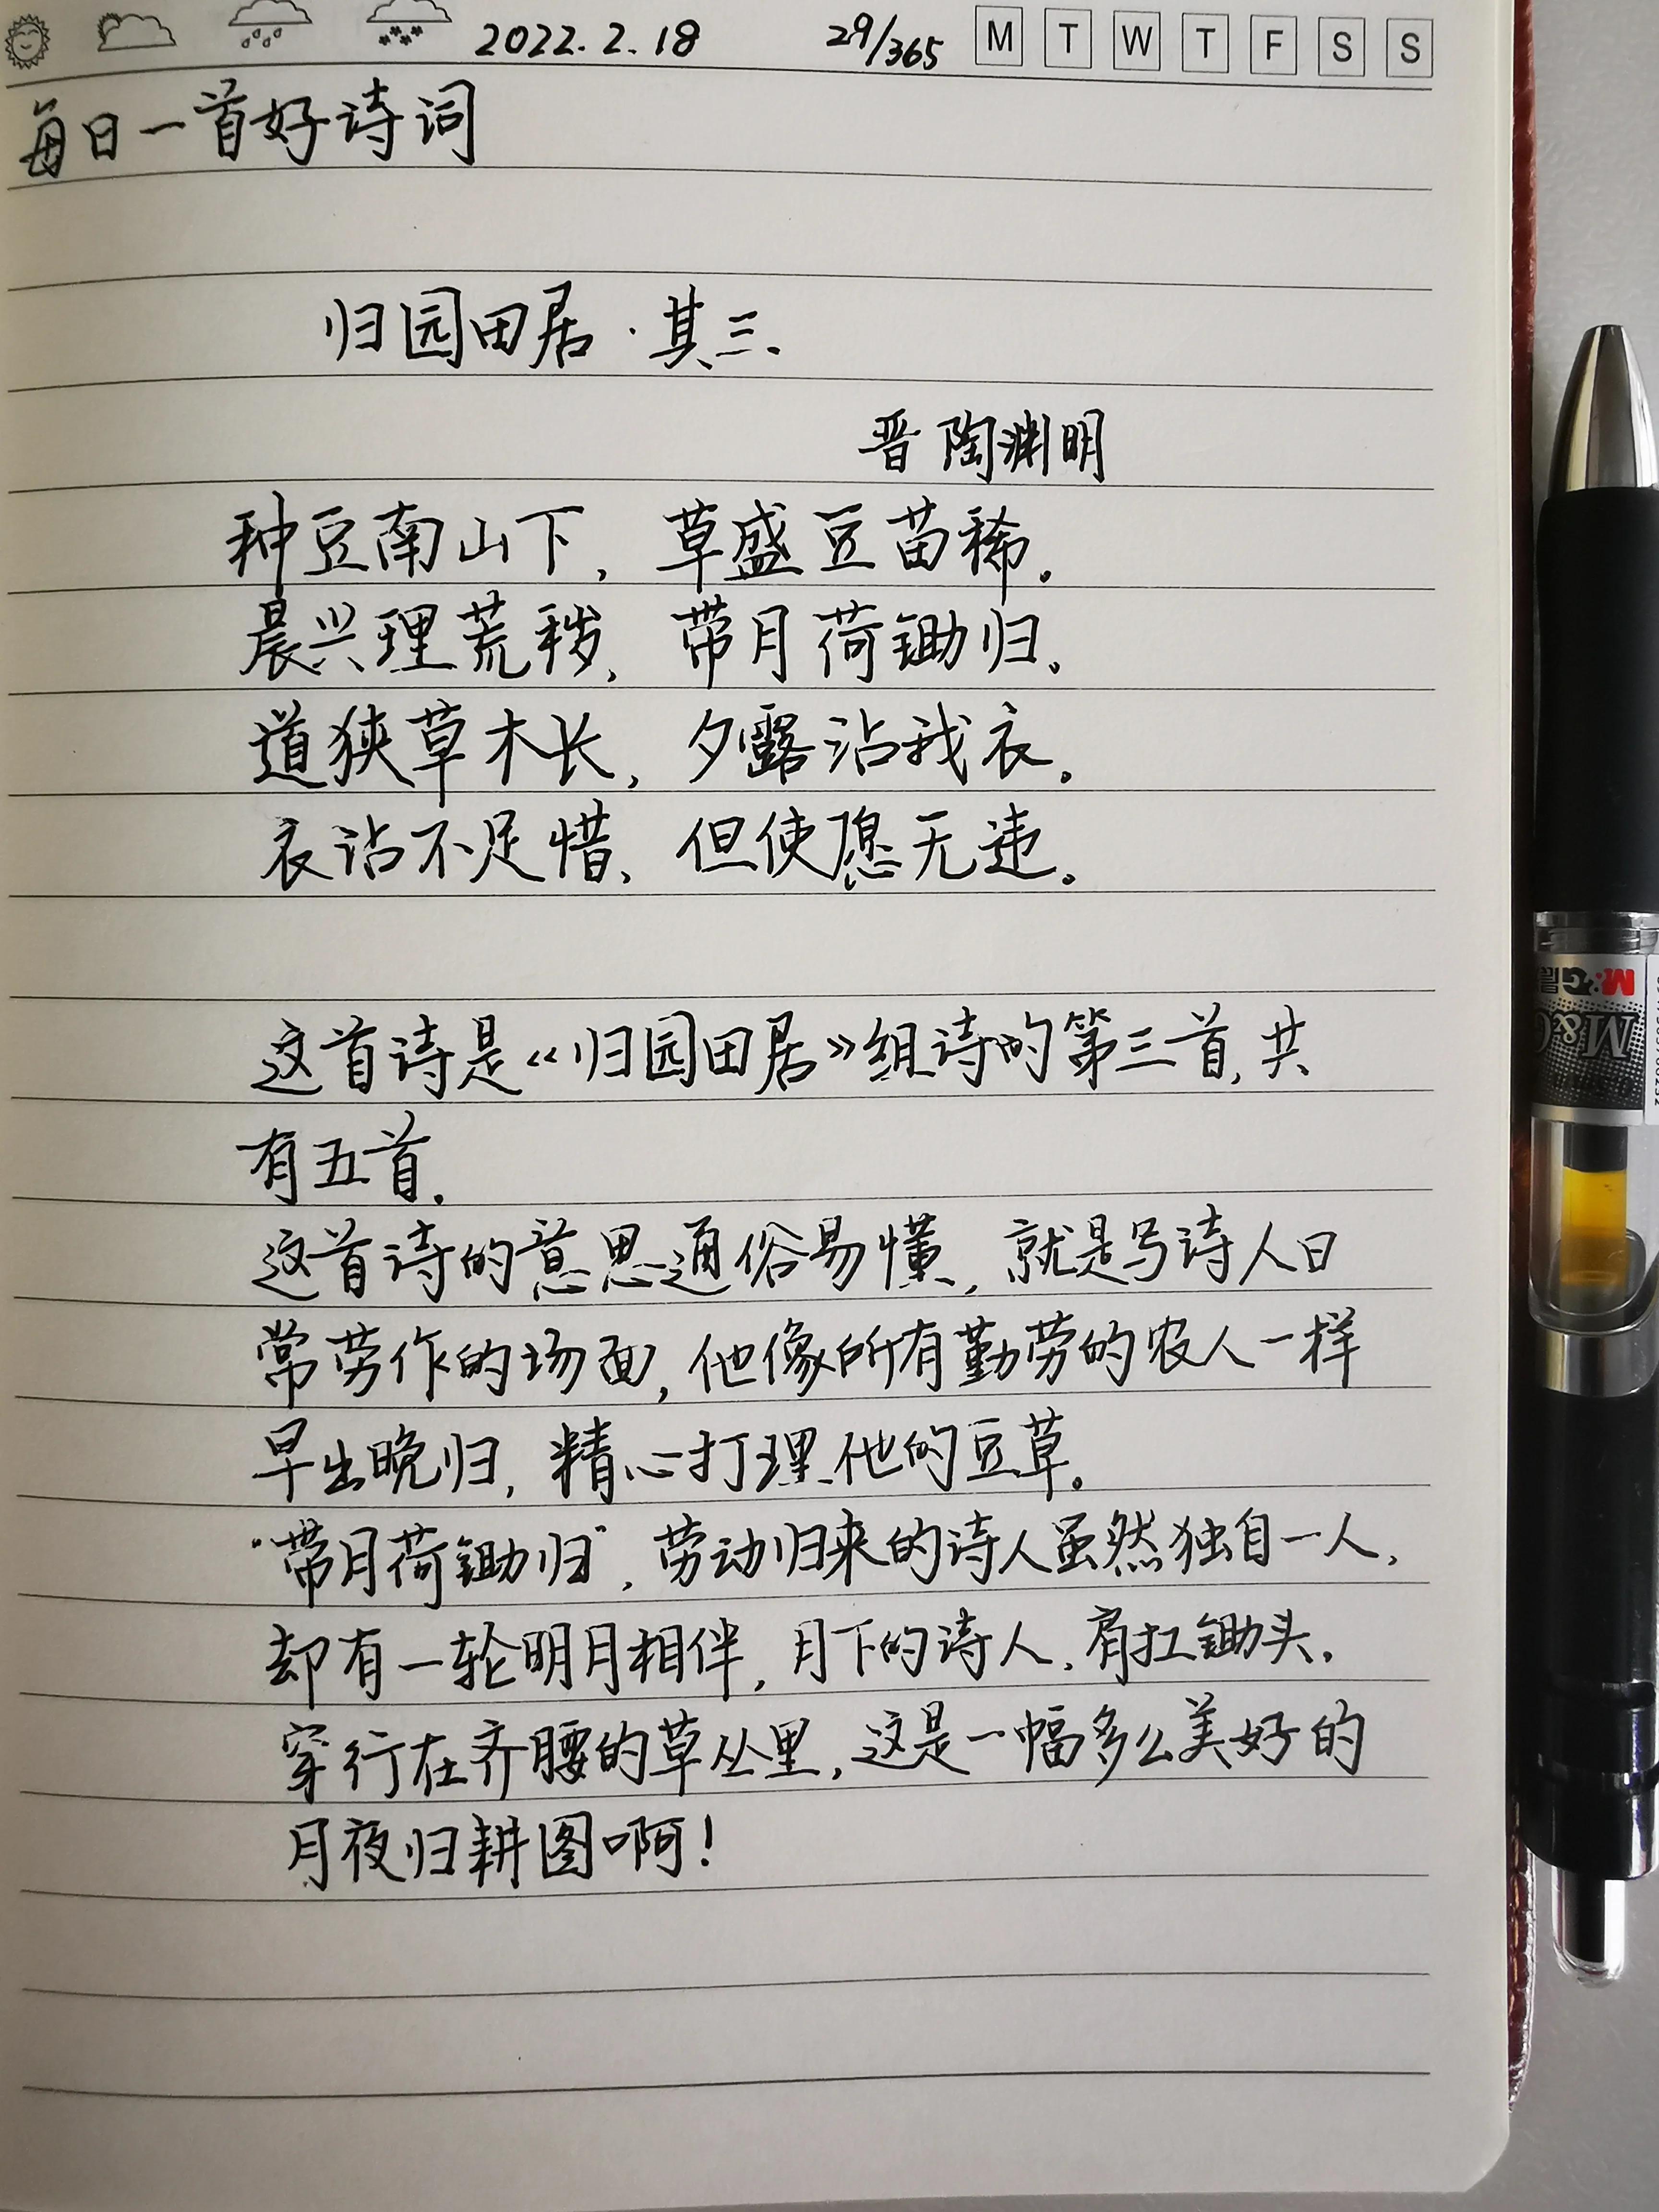 2022.2.18 29/365 M T W T F S S
每日一首好诗词
归园田居·其三.
晋 陶渊明
种豆南山下, 草盛豆苗稀.
晨兴理荒秽, 带月荷锄归.
道狭草木长, 夕露沾我衣.
衣沾不足惜, 但使愿无违.
这首诗是《归园田居》组诗的第三首,共
有五首.
这首诗的意思通俗易懂, 就是写诗人日
常劳作的场面,他像所有勤劳的农人一样
早出晚归, 精心打理他的豆草.
"带月荷锄归", 劳动归来的诗人虽然独自一人,
却有一轮明月相伴, 月下的诗人, 肩扛锄头,
穿行在齐腰的草丛里,这是一幅多么美好的
月夜归耕图啊!
M&G
M&G